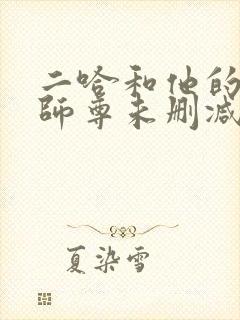 二哈和他的
师尊未删减
夏染雪